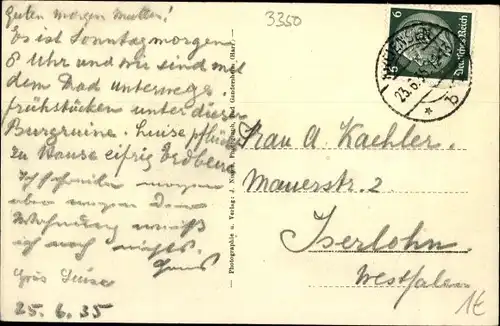 Guten Morgen Mutter!
Es ist Sonntagmorgen
8 Uhr und wir sind mit
dem Rad unterwegs,
frühstücken unter dieser
Burgruine. Luise pflückt
zu Hause eifrig Erdbeer
Ich schreibe morgen
aber wegen der
Wohnung weiß
ich noch nichts.
Hans
Luise
25.6.35
Photographie u. Verlag: J.
3350
6
Deutsches Reich
23.6.
b
Frau A. Kaehler.
Mauerstr. 2
Iserlohn.
Westfalen
1€